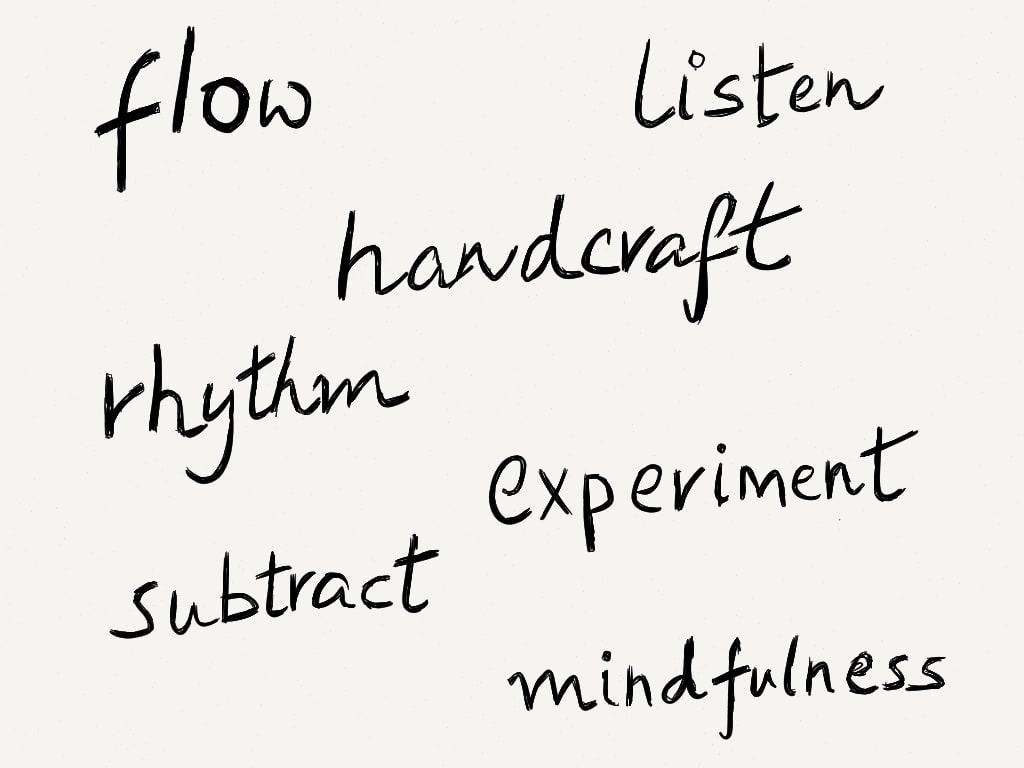 flow
listen
handcraft
rhythm
experiment
subtract
mindfulness